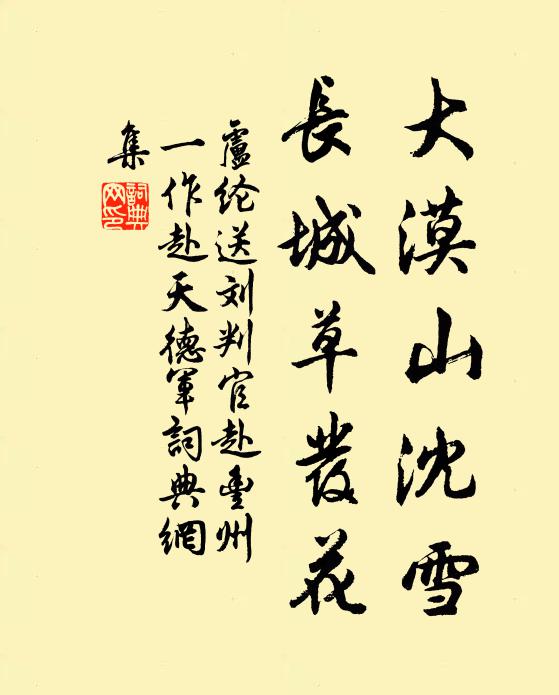 大漠山沈雪
長城草發花
盧纶送刘判官赴豊州
一作赴天德軍詞典網
集
詞典
网印